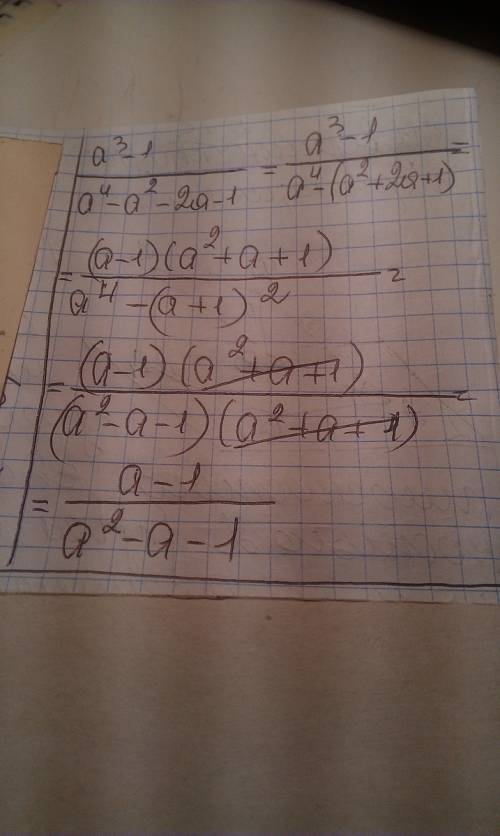 (a³-1)/(a⁴-a²-2a-1) = (a³-1)/(a⁴-(a²+2a+1)) =
= ((a-1)(a²+a+1))/(a⁴-(a+1)²) =
= ((a-1)(a²+a+1))/((a²-a-1)(a²+a+1)) =
= (a-1)/(a²-a-1)